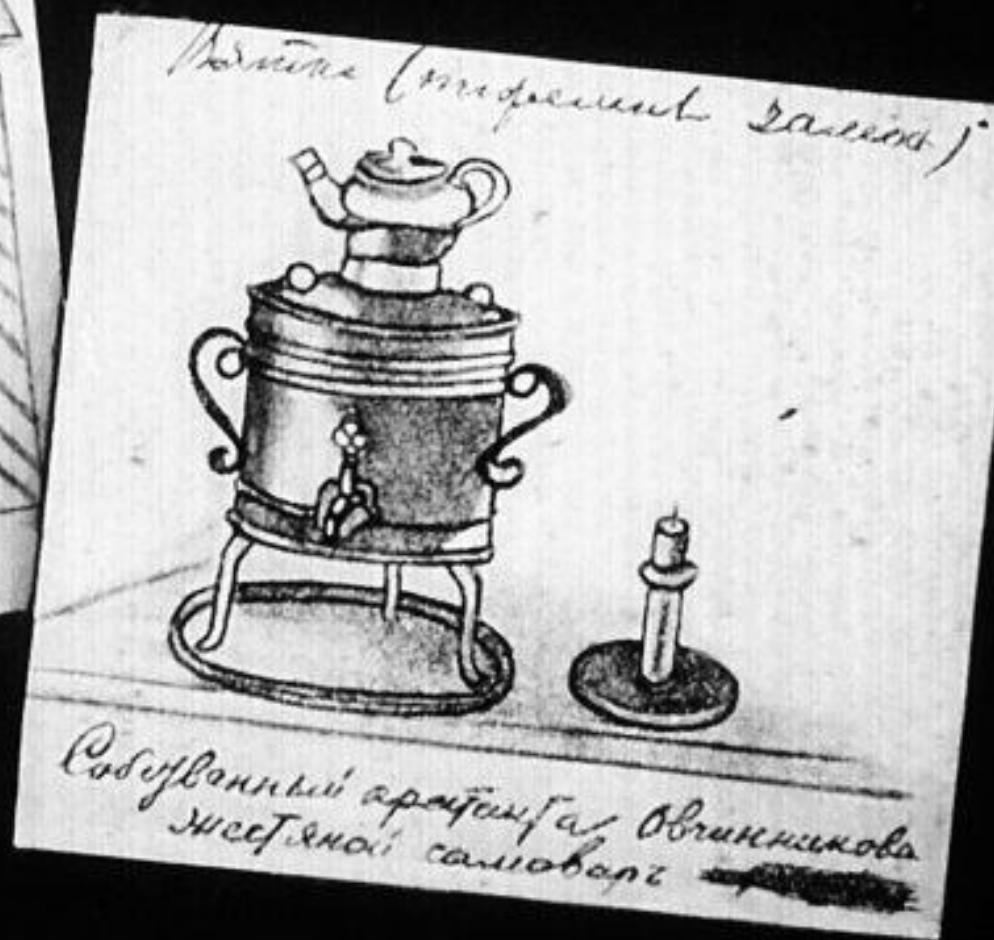 Вятка (тюремный замокъ)
арестанта Овчинникова
жестяной самоваръ